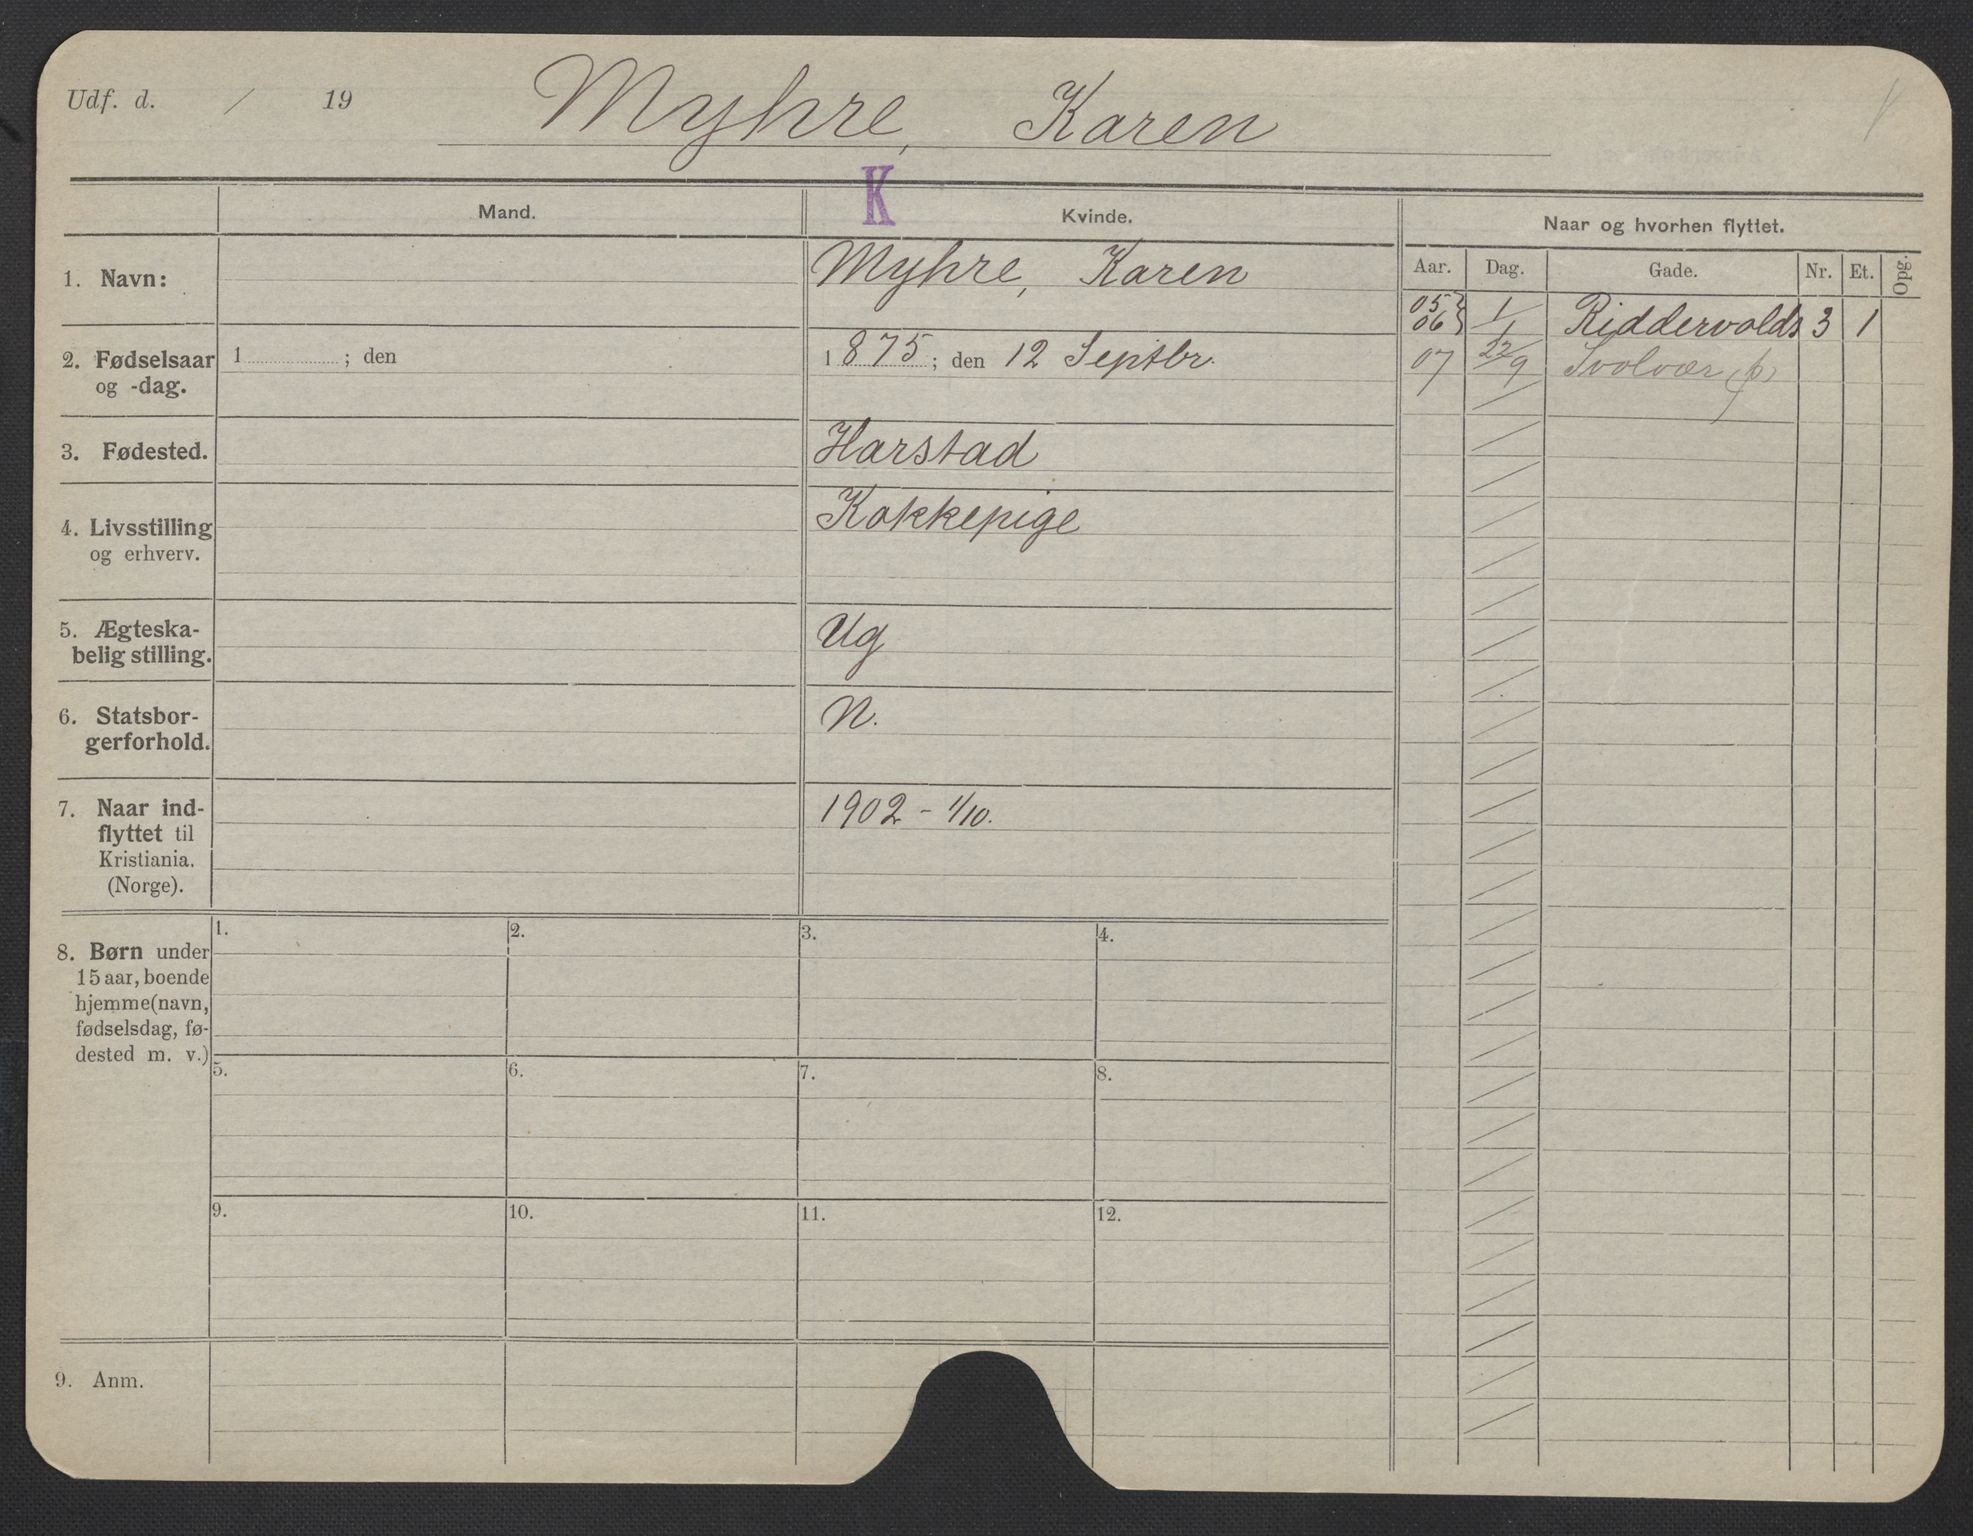 Udf. d. / 19 Myhre, Karen
K
Mand. Kvinde. Naar og hvorhen flyttet.
Aar. Dag. Gade. Nr. Et. Opg.
1. Navn: Myhre, Karen
05 06 } 1/1 Riddervolds 3 1
2. Fødselsaar og -dag. 1 ; den 1875; den 12 Septbr.
07 22/9 Svolvær (p)
3. Fødested. Harstad
4. Livsstilling og erhverv. Kokkepige
5. Ægteska-
belig stilling. Ug
6. Statsbor-
gerforhold. N.
7. Naar ind- 1902 - 1/10.
flyttet til
Kristiania.
(Norge).
1. 2. 3. 4.
8. Børn under
15 aar, boende
hjemme (navn,
fødselsdag, fø-
dested m. v.)
5. 6. 7. 8.
9. 10. 11. 12.
9. Anm.